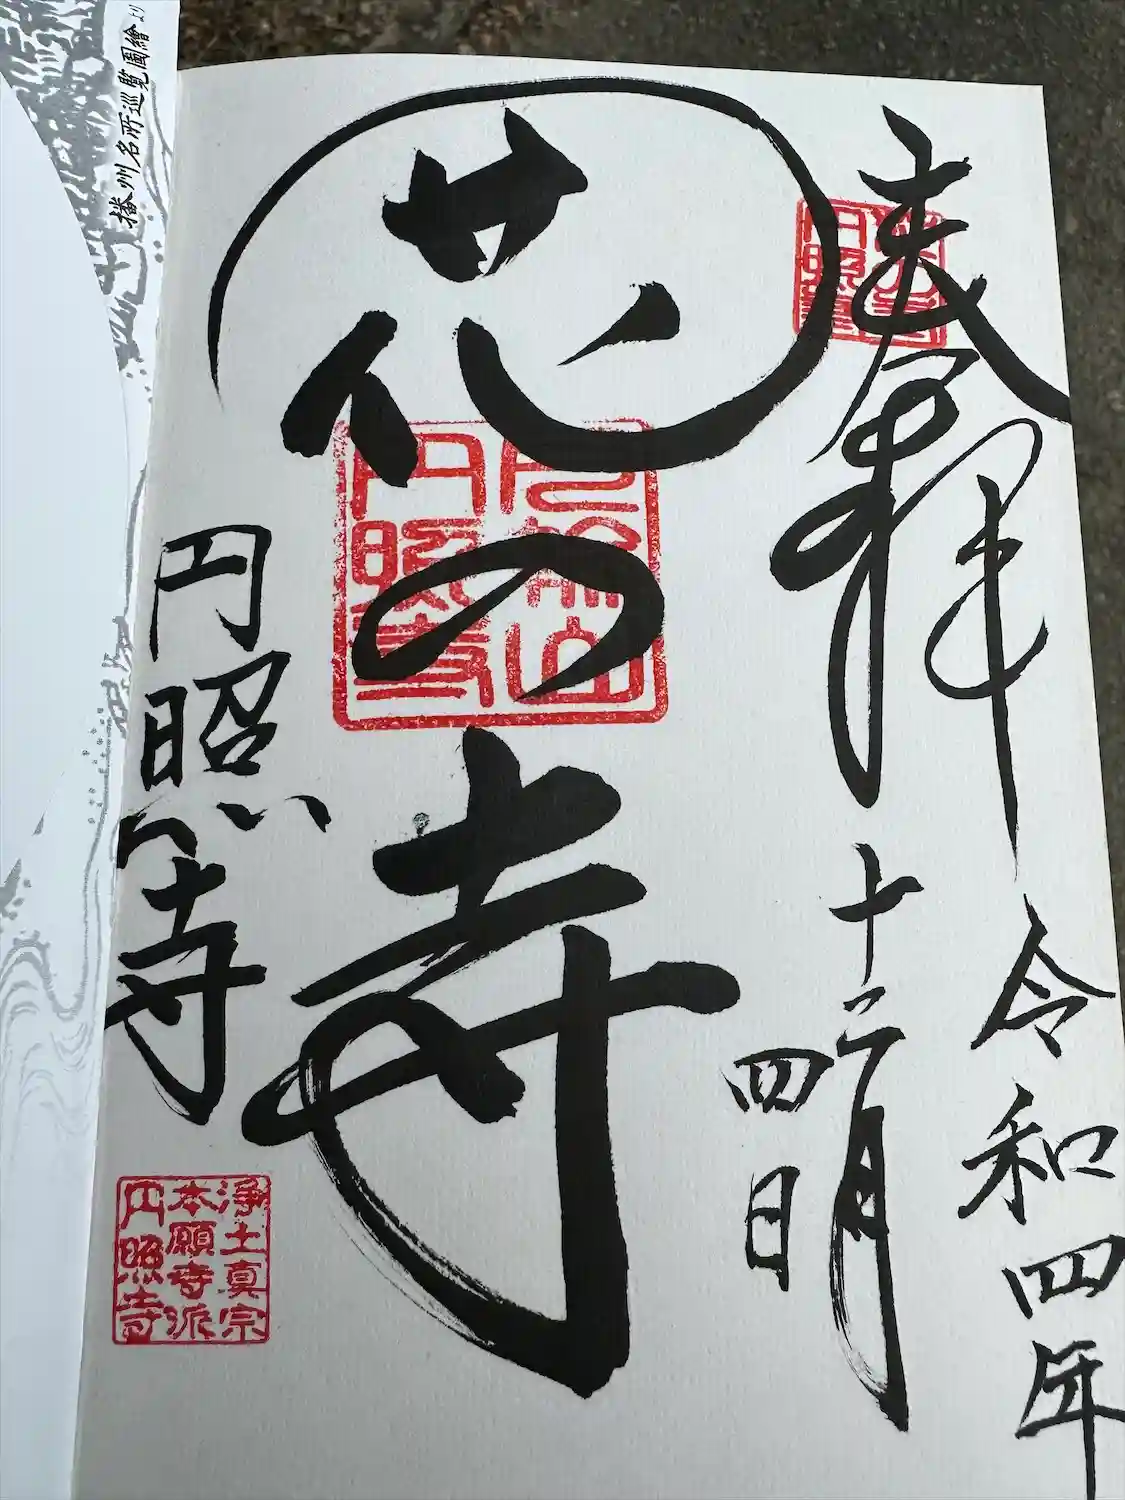 奉拝
令和四年
十二月
四日
花の寺
円照寺
円照寺
浄土真宗
本願寺派
円照寺
播州名所巡覧圖繪より